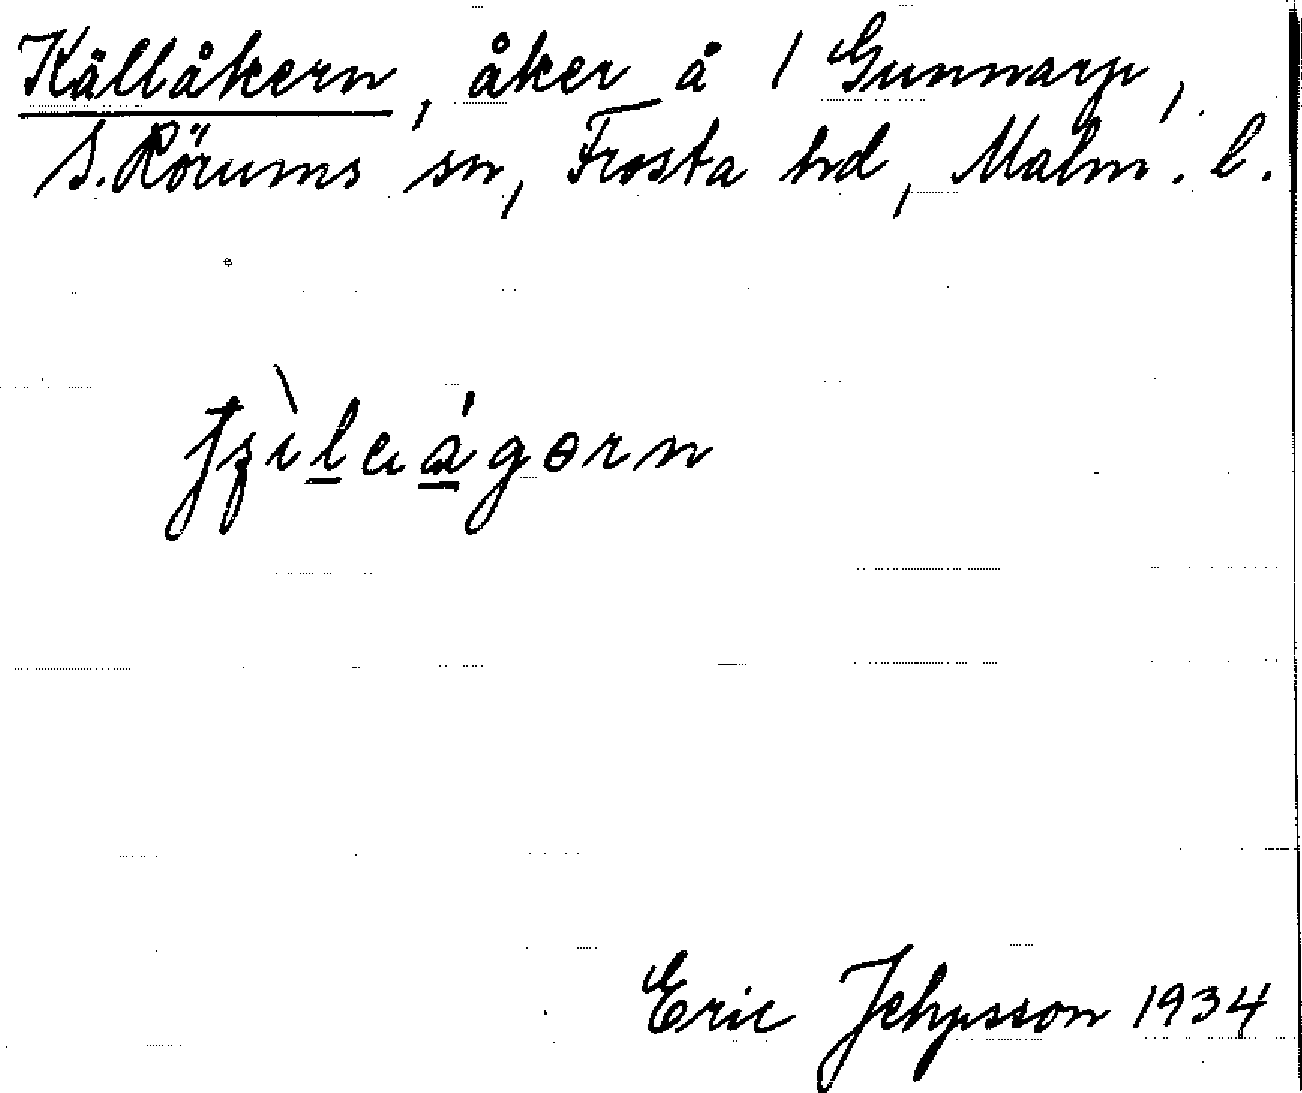 Källåkern, åker å 1 Gunnarp,
S. Rörums sn, Frosta hd, Malm. l.
Eric Jehpsson 1934